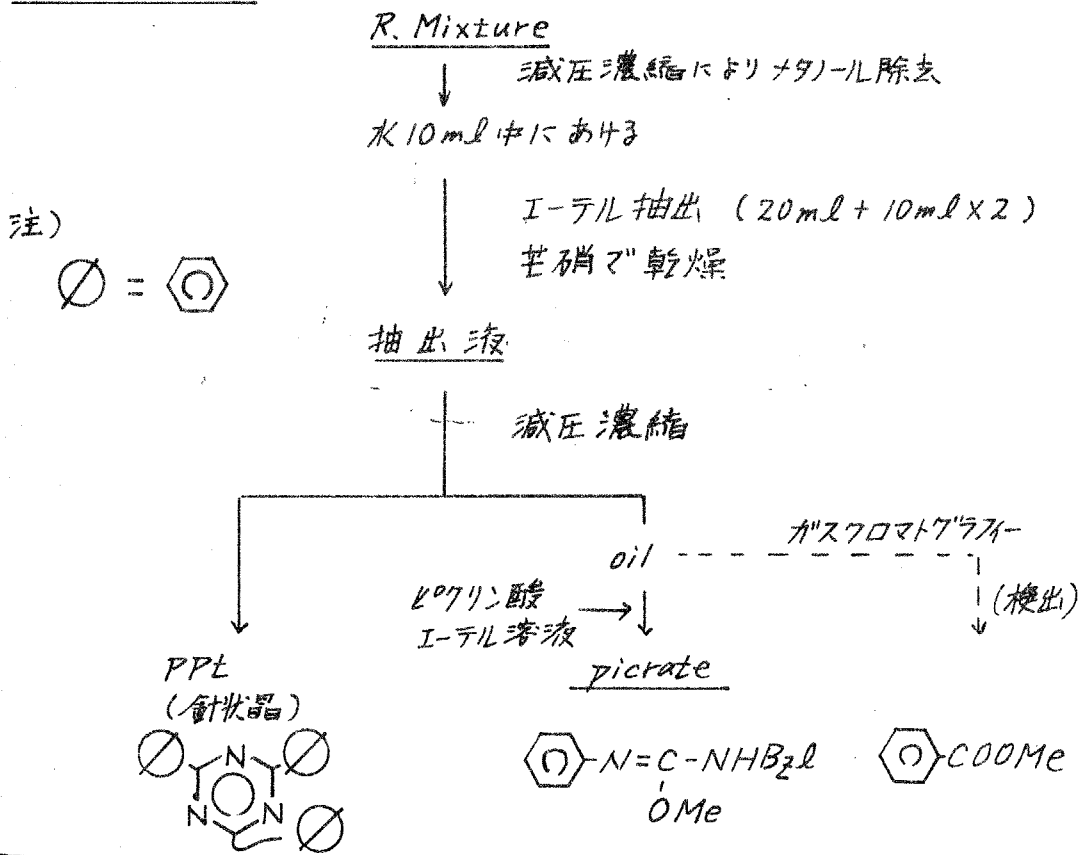 R. Mixture
減圧濃縮によりメタノール除去
水10ml中にあける
エーテル抽出 (20ml + 10ml×2)
芒硝で乾燥
注)
∅ =
抽出液
減圧濃縮
ガスクロマトグラフィー
oil
(検出)
ピクリン酸
エーテル溶液
PPt
(針状晶)
picrate
∅ N ∅
N N
∅
N=C-NHBzl
OMe
COOMe